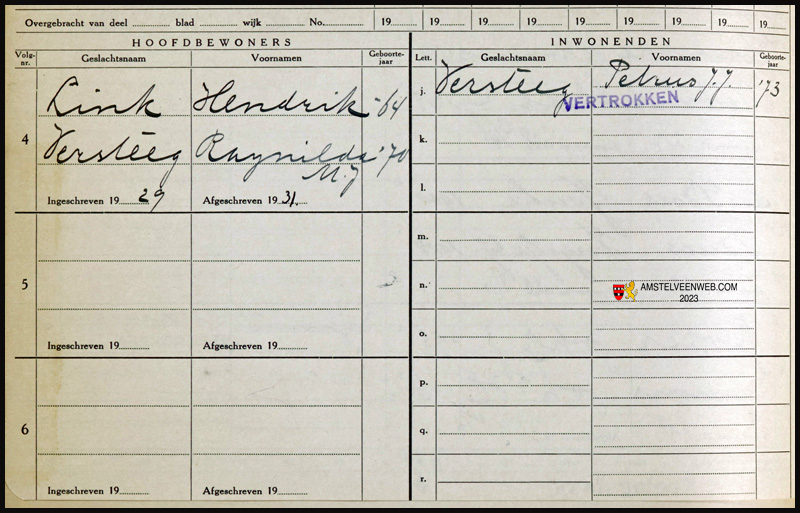 Overgebracht van deel ............ blad ......... wijk ......... No............. 19 19 19 19 19 19 19 19 19
HOOFDBEWONERS INWONENDEN
Volg-nr. Geslachtsnaam Voornamen Geboorte-jaar Lett. Geslachtsnaam Voornamen Geboorte-jaar
j. Versteeg Petrus J.J. '73
VERTROKKEN
Link Hendrik -'64
4 k.
Versteeg Raynilda '70
M.J
l.
Ingeschreven 19 29 Afgeschreven 19 31.
m.
5 n.
AMSTELVEENWEB.COM
2023
o.
Ingeschreven 19......... Afgeschreven 19.........
p.
6 q.
r.
Ingeschreven 19......... Afgeschreven 19.........